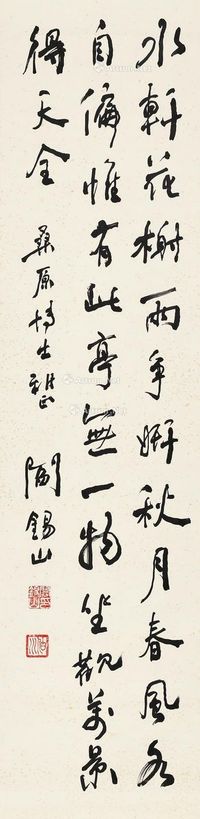 水軒花榭兩爭妍秋月春風各
自偏惟有此亭無一物坐觀萬景
得天全
桑原博士雅正
閻錫山